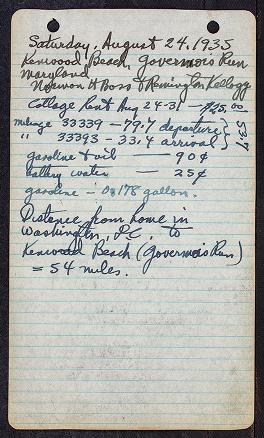 Saturday, August 24, 1935
Kenwood Beach, Governors Run
Maryland
Norman H Boss & Remington Kellogg
Cottage Rent Aug 24-31 — $25.00
mileage 33339 - 79.7 departure } 53.7
" 33393 - 33.4 arrival }
gasoline & oil — 90¢
battery water — 25¢
gasoline - 0.178 gallon.
Distance from home in
Washington, D.C. to
Kenwood Beach (Governors Run)
= 54 miles.